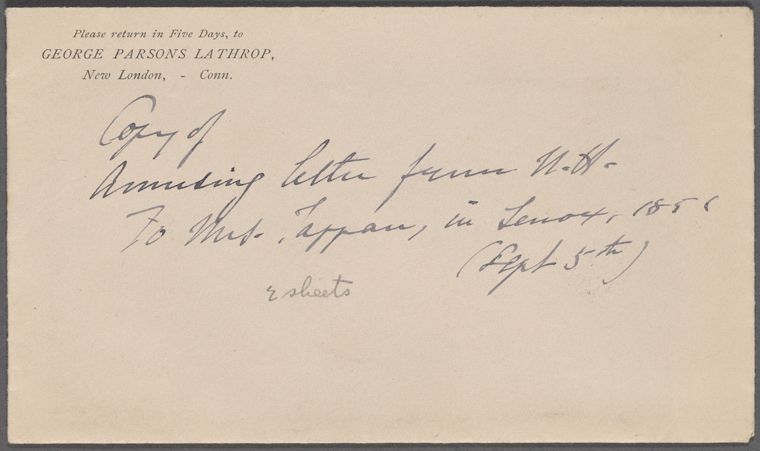 Please return in Five Days, to
GEORGE PARSONS LATHROP,
New London, - Conn.
Copy of
Amusing letter from N.H-
To Mrs. Tappan, in Lenox, 1851
(Sept 5th)
2 sheets